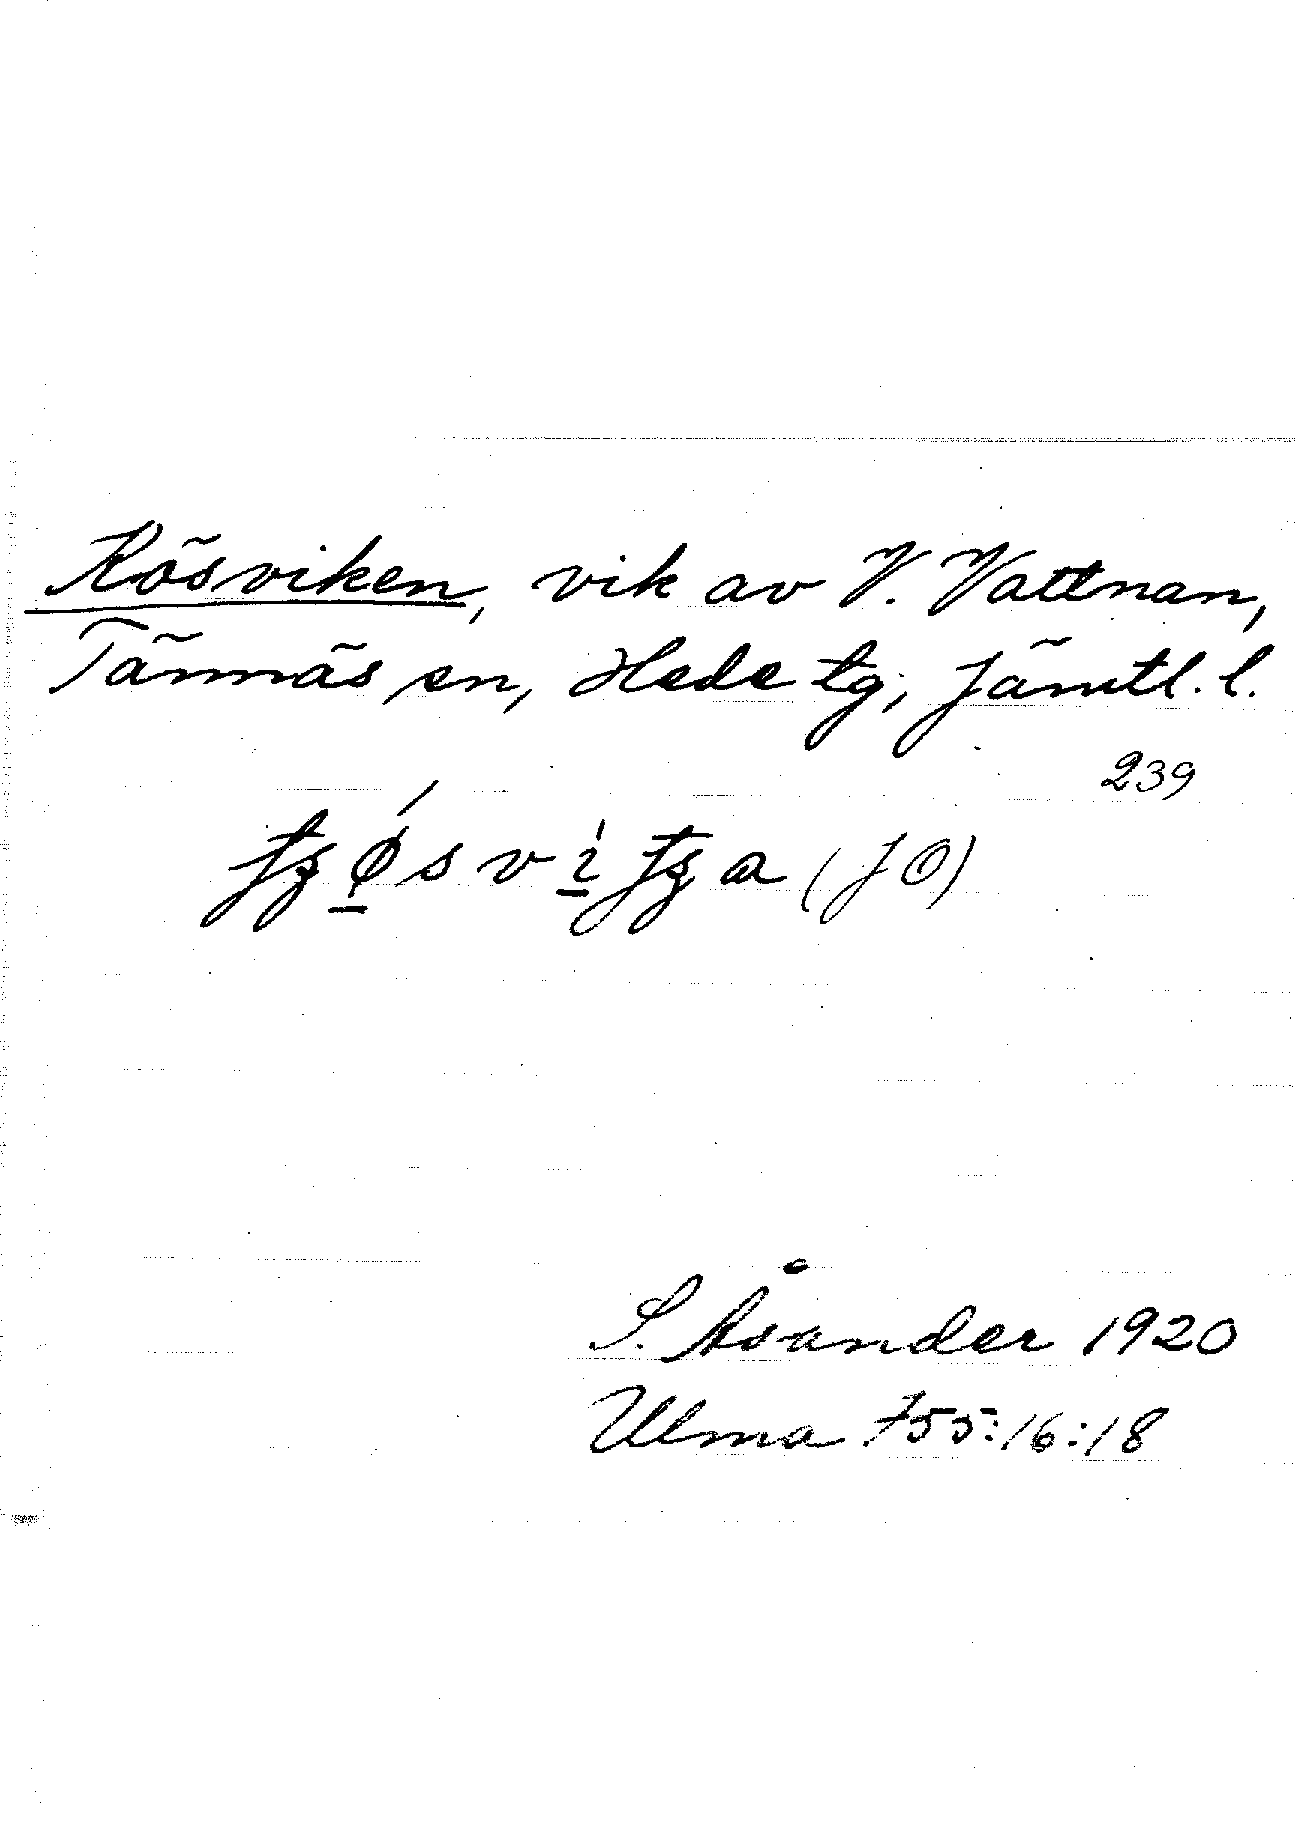 Kösviken, vik av V. Vattnan,
Tännäs sn, Hede tg, Jämtl. l.
239
S. Åsander 1920
Ulma 755:16:18